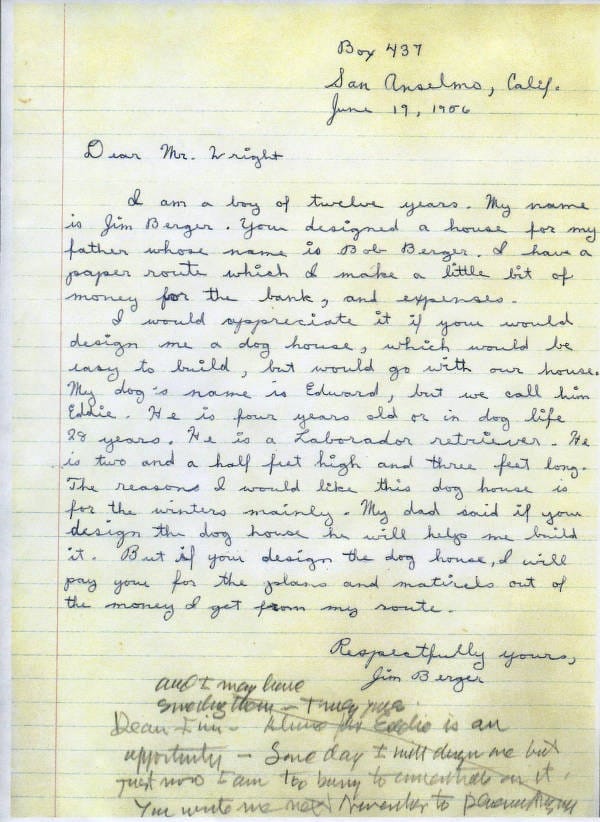 Box 437
San Anselmo, Calif.
June 19, 1956
Dear Mr. Wright
I am a boy of twelve years. My name
is Jim Berger. You designed a house for my
father whose name is Bob Berger. I have a
paper route which I make a little bit of
money for the bank, and expenses.
I would appreciate it if you would
design me a dog house, which would be
easy to build, but would go with our house.
My dog's name is Edward, but we call him
Eddie. He is four years old or in dog life
28 years. He is a Laborador retriever. He
is two and a half feet high and three feet long.
The reasons I would like this dog house is
for the winters mainly. My dad said if you
design the dog house he will helps me build
it. But if you design the dog house, I will
pay you for the plans and matirels out of
the money I get from my route.
Respectfully yours,
Jim Berger
and I may have
something then – I may
Dear Jim – House for Eddie is an
opportunity – Some day I will design one but
just now I am too busy to concentrate on it.
You write me next November to Phoenix